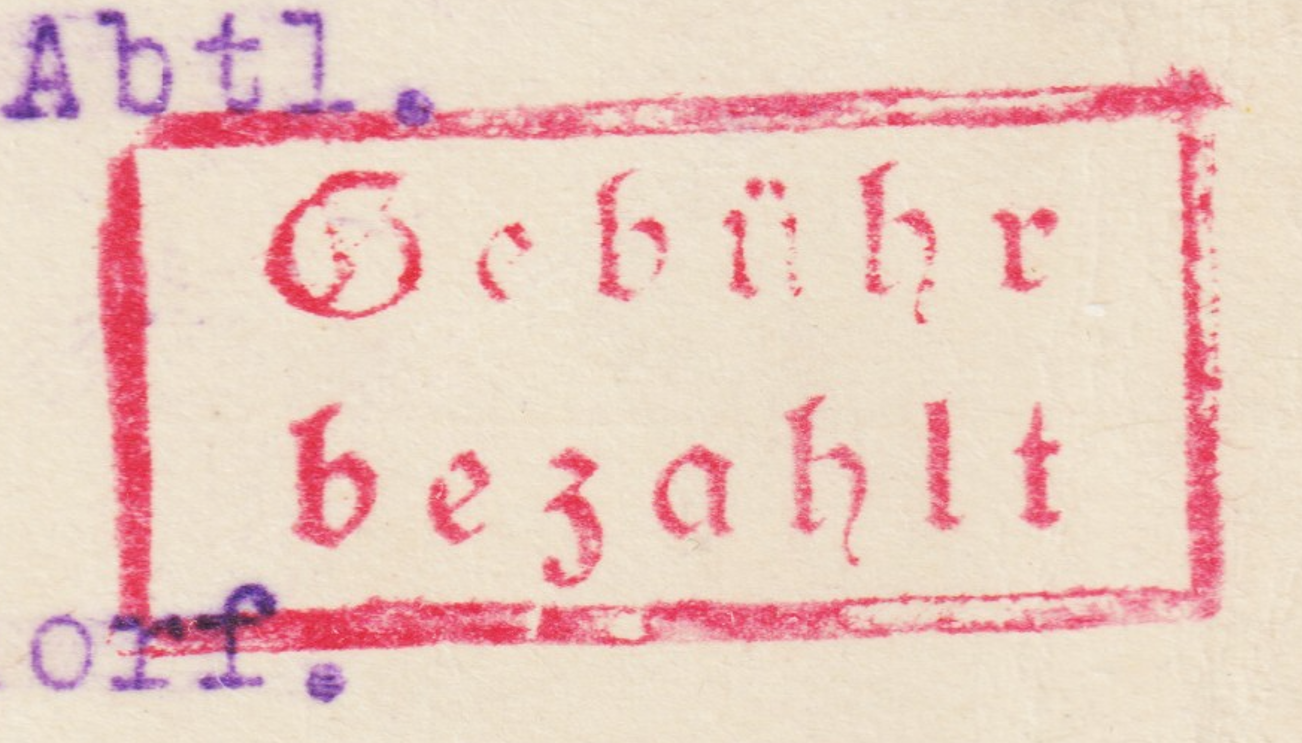 Abtl.
Gebühr
bezahlt
orf.